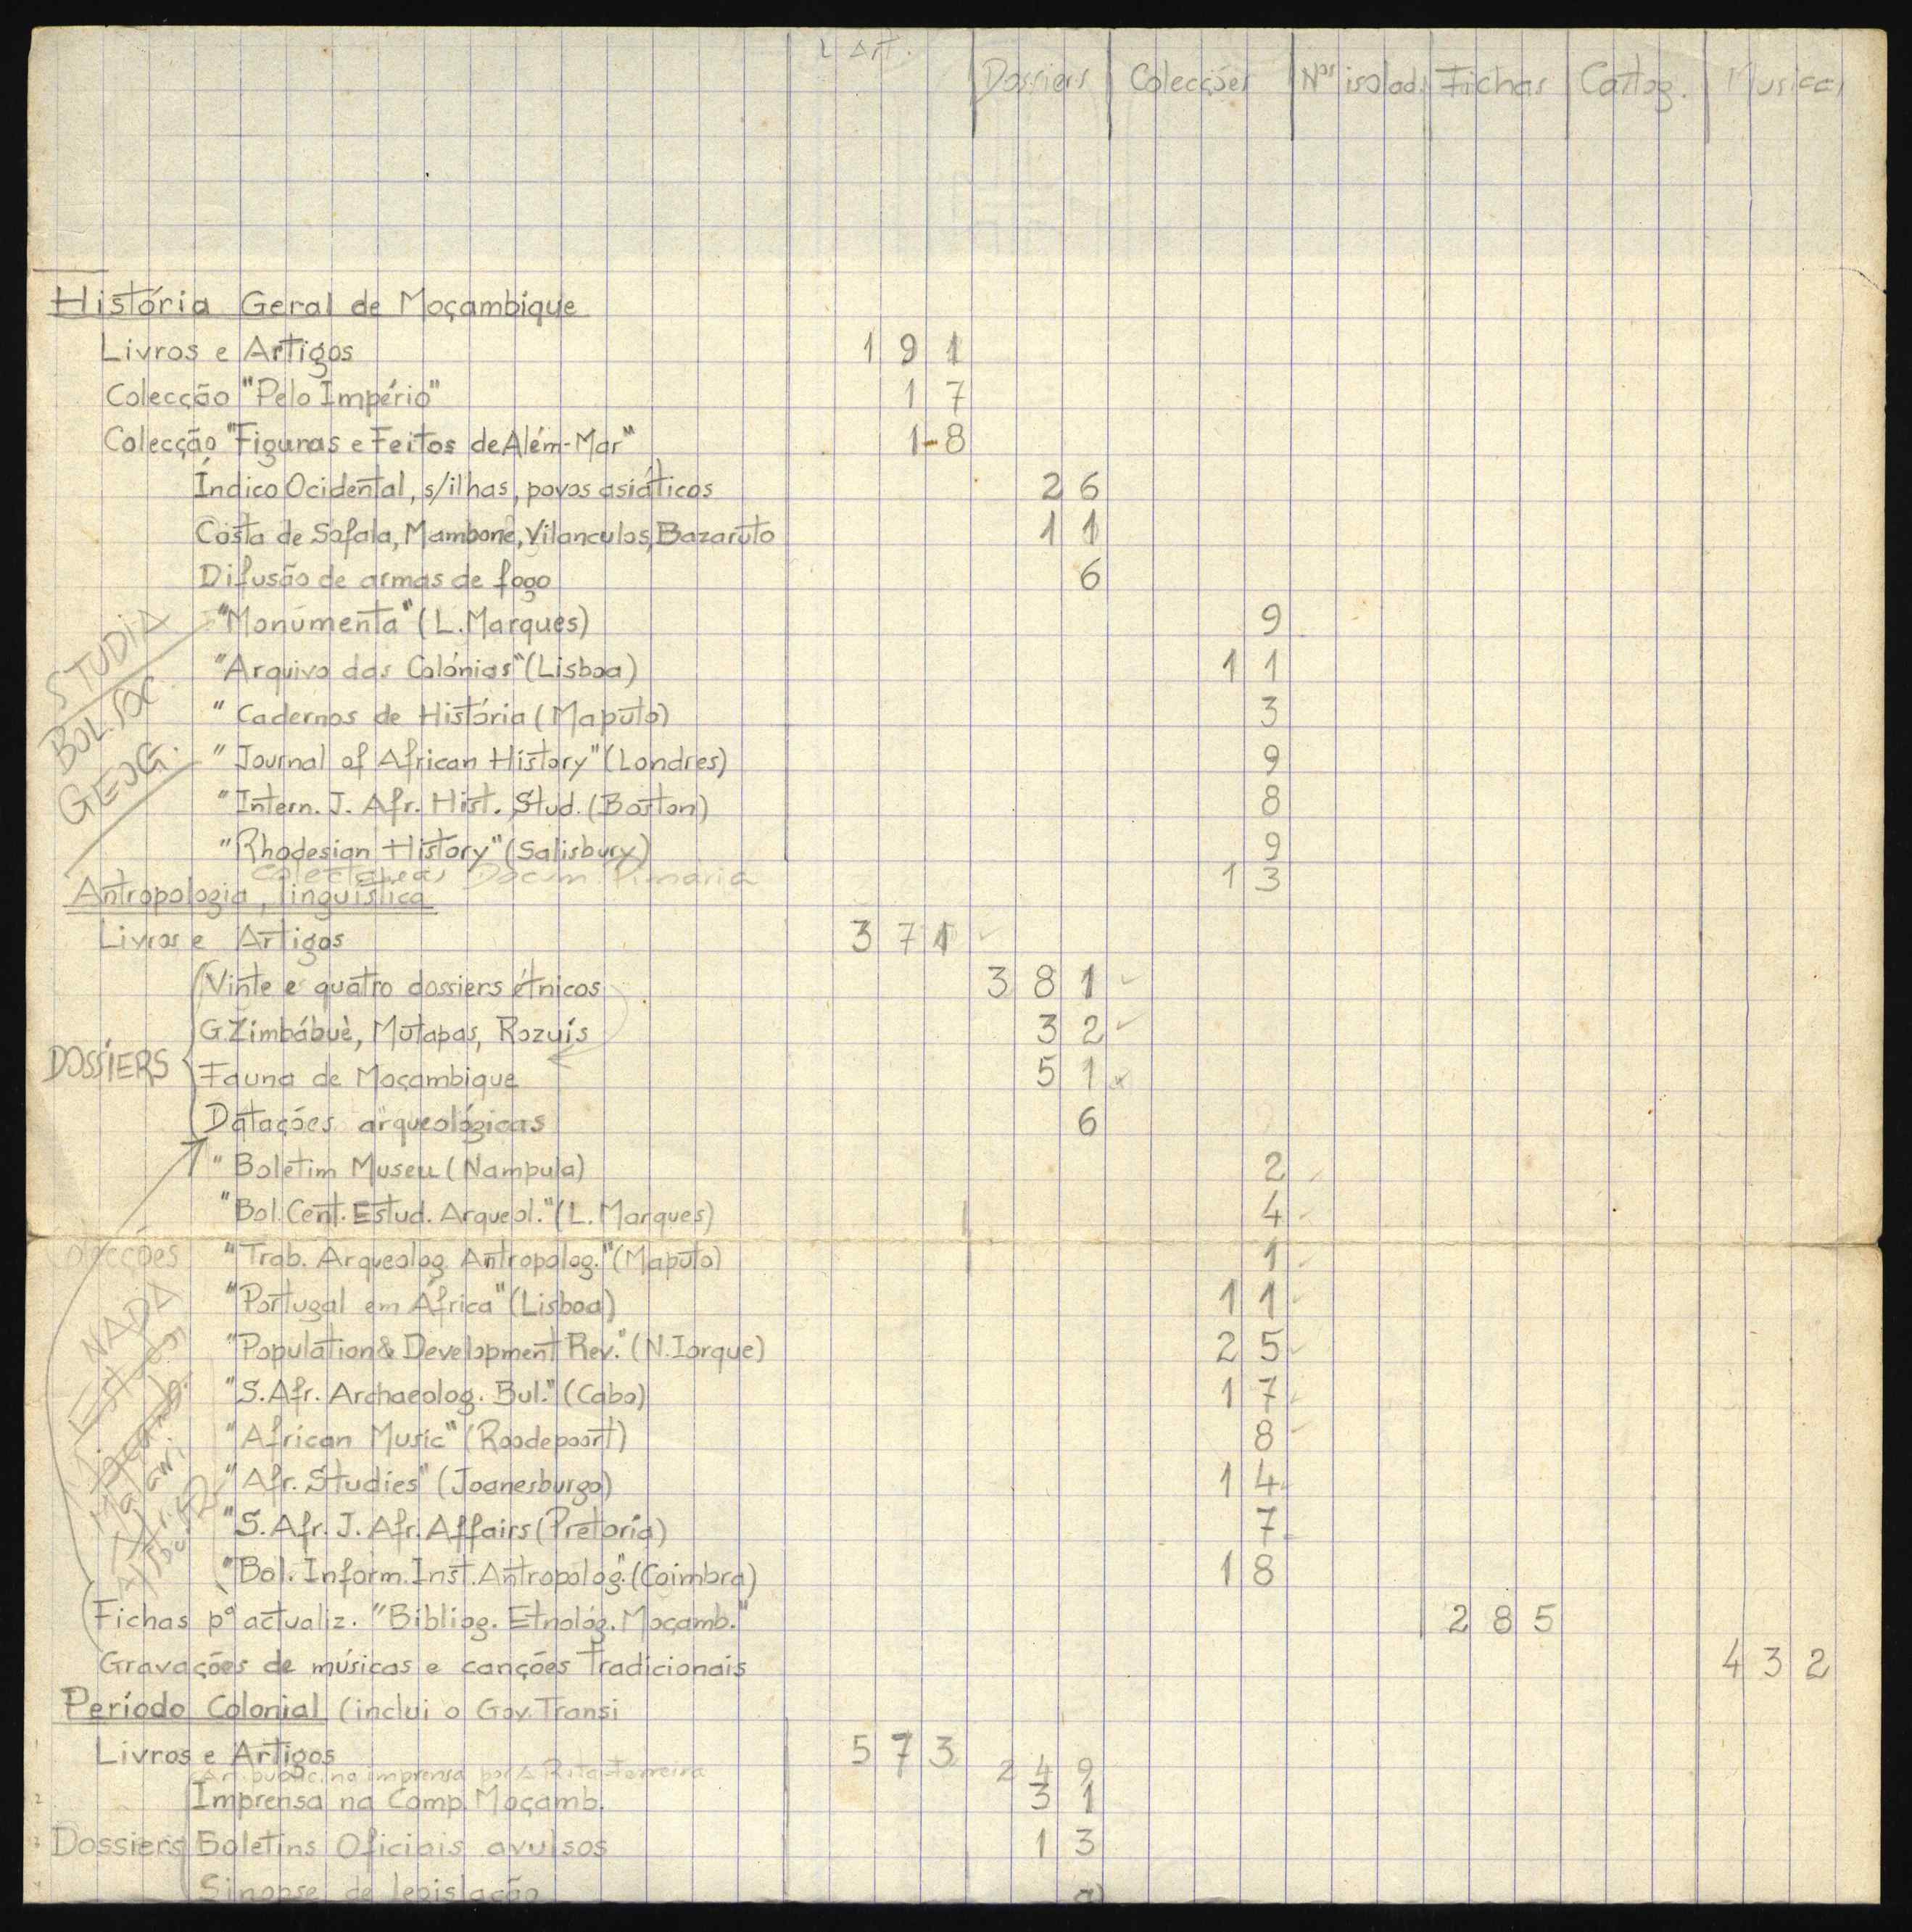 L Art. Dossiers Colecções Nos isolad. Fichas Cartog. Musicas
História Geral de Moçambique
Livros e Artigos 191
Colecção "Pelo Império" 17
Colecção "Figuras e Feitos de Além-Mar" 1-8
Índico Ocidental, s/ilhas, povos asiáticos 26
Costa de Sofala, Mambone, Vilanculos, Bazaruto 11
Difusão de armas de fogo 6
"Monumenta" (L.Marques) 9
"Arquivo das Colónias" (Lisboa) 11
" Cadernos de História (Maputo) 3
" Journal of African History" (Londres) 9
"Intern. J. Afr. Hist. Stud. (Boston) 8
"Rhodesian History" (Salisbury) 9
STUDIA
BOL. SOC
GEOG.
Colectaneas Docum. Primaria 13
Antropologia, linguística
Livros e Artigos 371
Vinte e quatro dossiers étnicos 381
G.Zimbábuè, Mutapas, Rozuis 32
DOSSIERS
Fauna de Moçambique 51
Datações arqueológicas 6
" Boletim Museu (Nampula) 2
"Bol. Cent. Estud. Arqueol." (L. Marques) 4
"Trab. Arqueolog. Antropolog." (Maputo) 1
"Portugal em África" (Lisboa) 11
"Population & Development Rev." (N.Iorque) 25
"S.Afr. Archaeolog. Bul." (Cabo) 17
"African Music" (Roodepoort) 8
"Afr. Studies" (Joanesburgo) 14
"S. Afr. J. Afr. Affairs (Pretoria) 7
"Bol. Inform. Inst. Antropolog." (Coimbra) 18
NADA
Fichas pª actualiz. "Bibliog. Etnológ. Moçamb." 285
Gravações de músicas e canções tradicionais 432
Período Colonial (inclui o Gov. Transi
Livros e Artigos 573
Art. public. na imprensa por A Rita-Ferreira 249
Imprensa na Comp. Moçamb. 31
Dossiers Boletins Oficiais avulsos 13
Sinopse de legislação a)